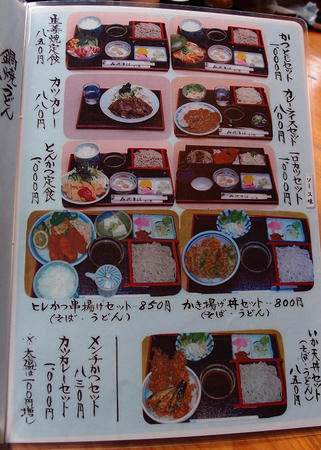 かつとじセット
一〇〇〇円
カレーライスセット
八〇〇円
一口カツセット
ソース味
一〇〇〇円
生姜焼定食
八五〇円
カツカレー
八八〇円
とんかつ定食
一〇〇〇円
鍋焼うどん
ヒレかつ串揚げセット…850円
(そば・うどん)
かき揚げ丼セット…800円
(そば・うどん)
いか天丼セット
(そば・うどん)
八五〇円
メンチかつセット
八三〇円
カツカレーセット
一〇〇〇円
※大盛は一〇〇円増し